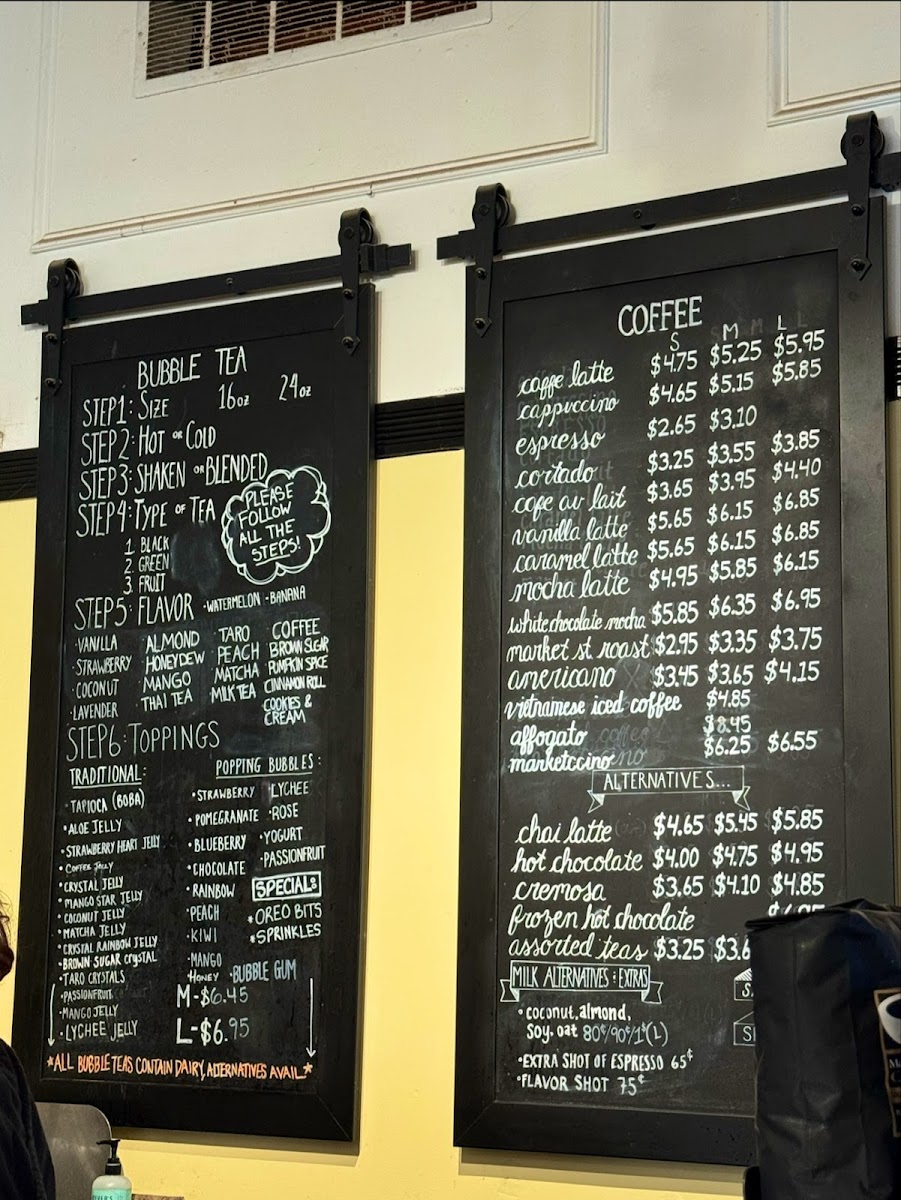 BUBBLE TEA
STEP1: SIZE 16oz 24oz
STEP2: HOT OR COLD
STEP3: SHAKEN OR BLENDED
STEP4: TYPE OF TEA
1. BLACK
2. GREEN
3. FRUIT
PLEASE
FOLLOW
ALL THE
STEPS!
STEP5: FLAVOR ·WATERMELON ·BANANA
·VANILLA ALMOND TARO COFFEE
·STRAWBERRY HONEYDEW PEACH BROWN SUGAR
·COCONUT MANGO MATCHA PUMPKIN SPICE
·LAVENDER THAI TEA MILK TEA CINNAMON ROLL
COOKIES &
CREAM
STEP6: TOPPINGS
TRADITIONAL:
·TAPIOCA (BOBA)
·ALOE JELLY
·STRAWBERRY HEART JELLY
·COFFEE JELLY
·CRYSTAL JELLY
·MANGO STAR JELLY
·COCONUT JELLY
·MATCHA JELLY
·CRYSTAL RAINBOW JELLY
·BROWN SUGAR CRYSTAL
·TARO CRYSTALS
·PASSIONFRUIT
·MANGO JELLY
·LYCHEE JELLY
POPPING BUBBLES:
·STRAWBERRY ·LYCHEE
·POMEGRANATE ·ROSE
·BLUEBERRY ·YOGURT
·CHOCOLATE ·PASSIONFRUIT
·RAINBOW
·PEACH
·KIWI
·MANGO
HONEY ·BUBBLE GUM
SPECIAL:
*OREO BITS
*SPRINKLES
M-$6.45
L-$6.95
*ALL BUBBLE TEAS CONTAIN DAIRY, ALTERNATIVES AVAIL.*
COFFEE
S M L
caffe latte $4.75 $5.25 $5.95
cappuccino $4.65 $5.15 $5.85
espresso $2.65 $3.10
cortado $3.25 $3.55 $3.85
cafe au lait $3.65 $3.95 $4.40
vanilla latte $5.65 $6.15 $6.85
caramel latte $5.65 $6.15 $6.85
mocha latte $4.95 $5.85 $6.15
white chocolate mocha $5.85 $6.35 $6.95
market st. roast $2.95 $3.35 $3.75
americano $3.45 $3.65 $4.15
vietnamese iced coffee $4.85
affogato
marketccino $6.25 $6.55
ALTERNATIVES...
chai latte $4.65 $5.45 $5.85
hot chocolate $4.00 $4.75 $4.95
cremosa $3.65 $4.10 $4.85
frozen hot chocolate
assorted teas $3.25
MILK ALTERNATIVES & EXTRAS
·coconut, almond,
soy, oat 80¢/90¢/1$(L)
·EXTRA SHOT OF ESPRESSO 65¢
·FLAVOR SHOT 75¢